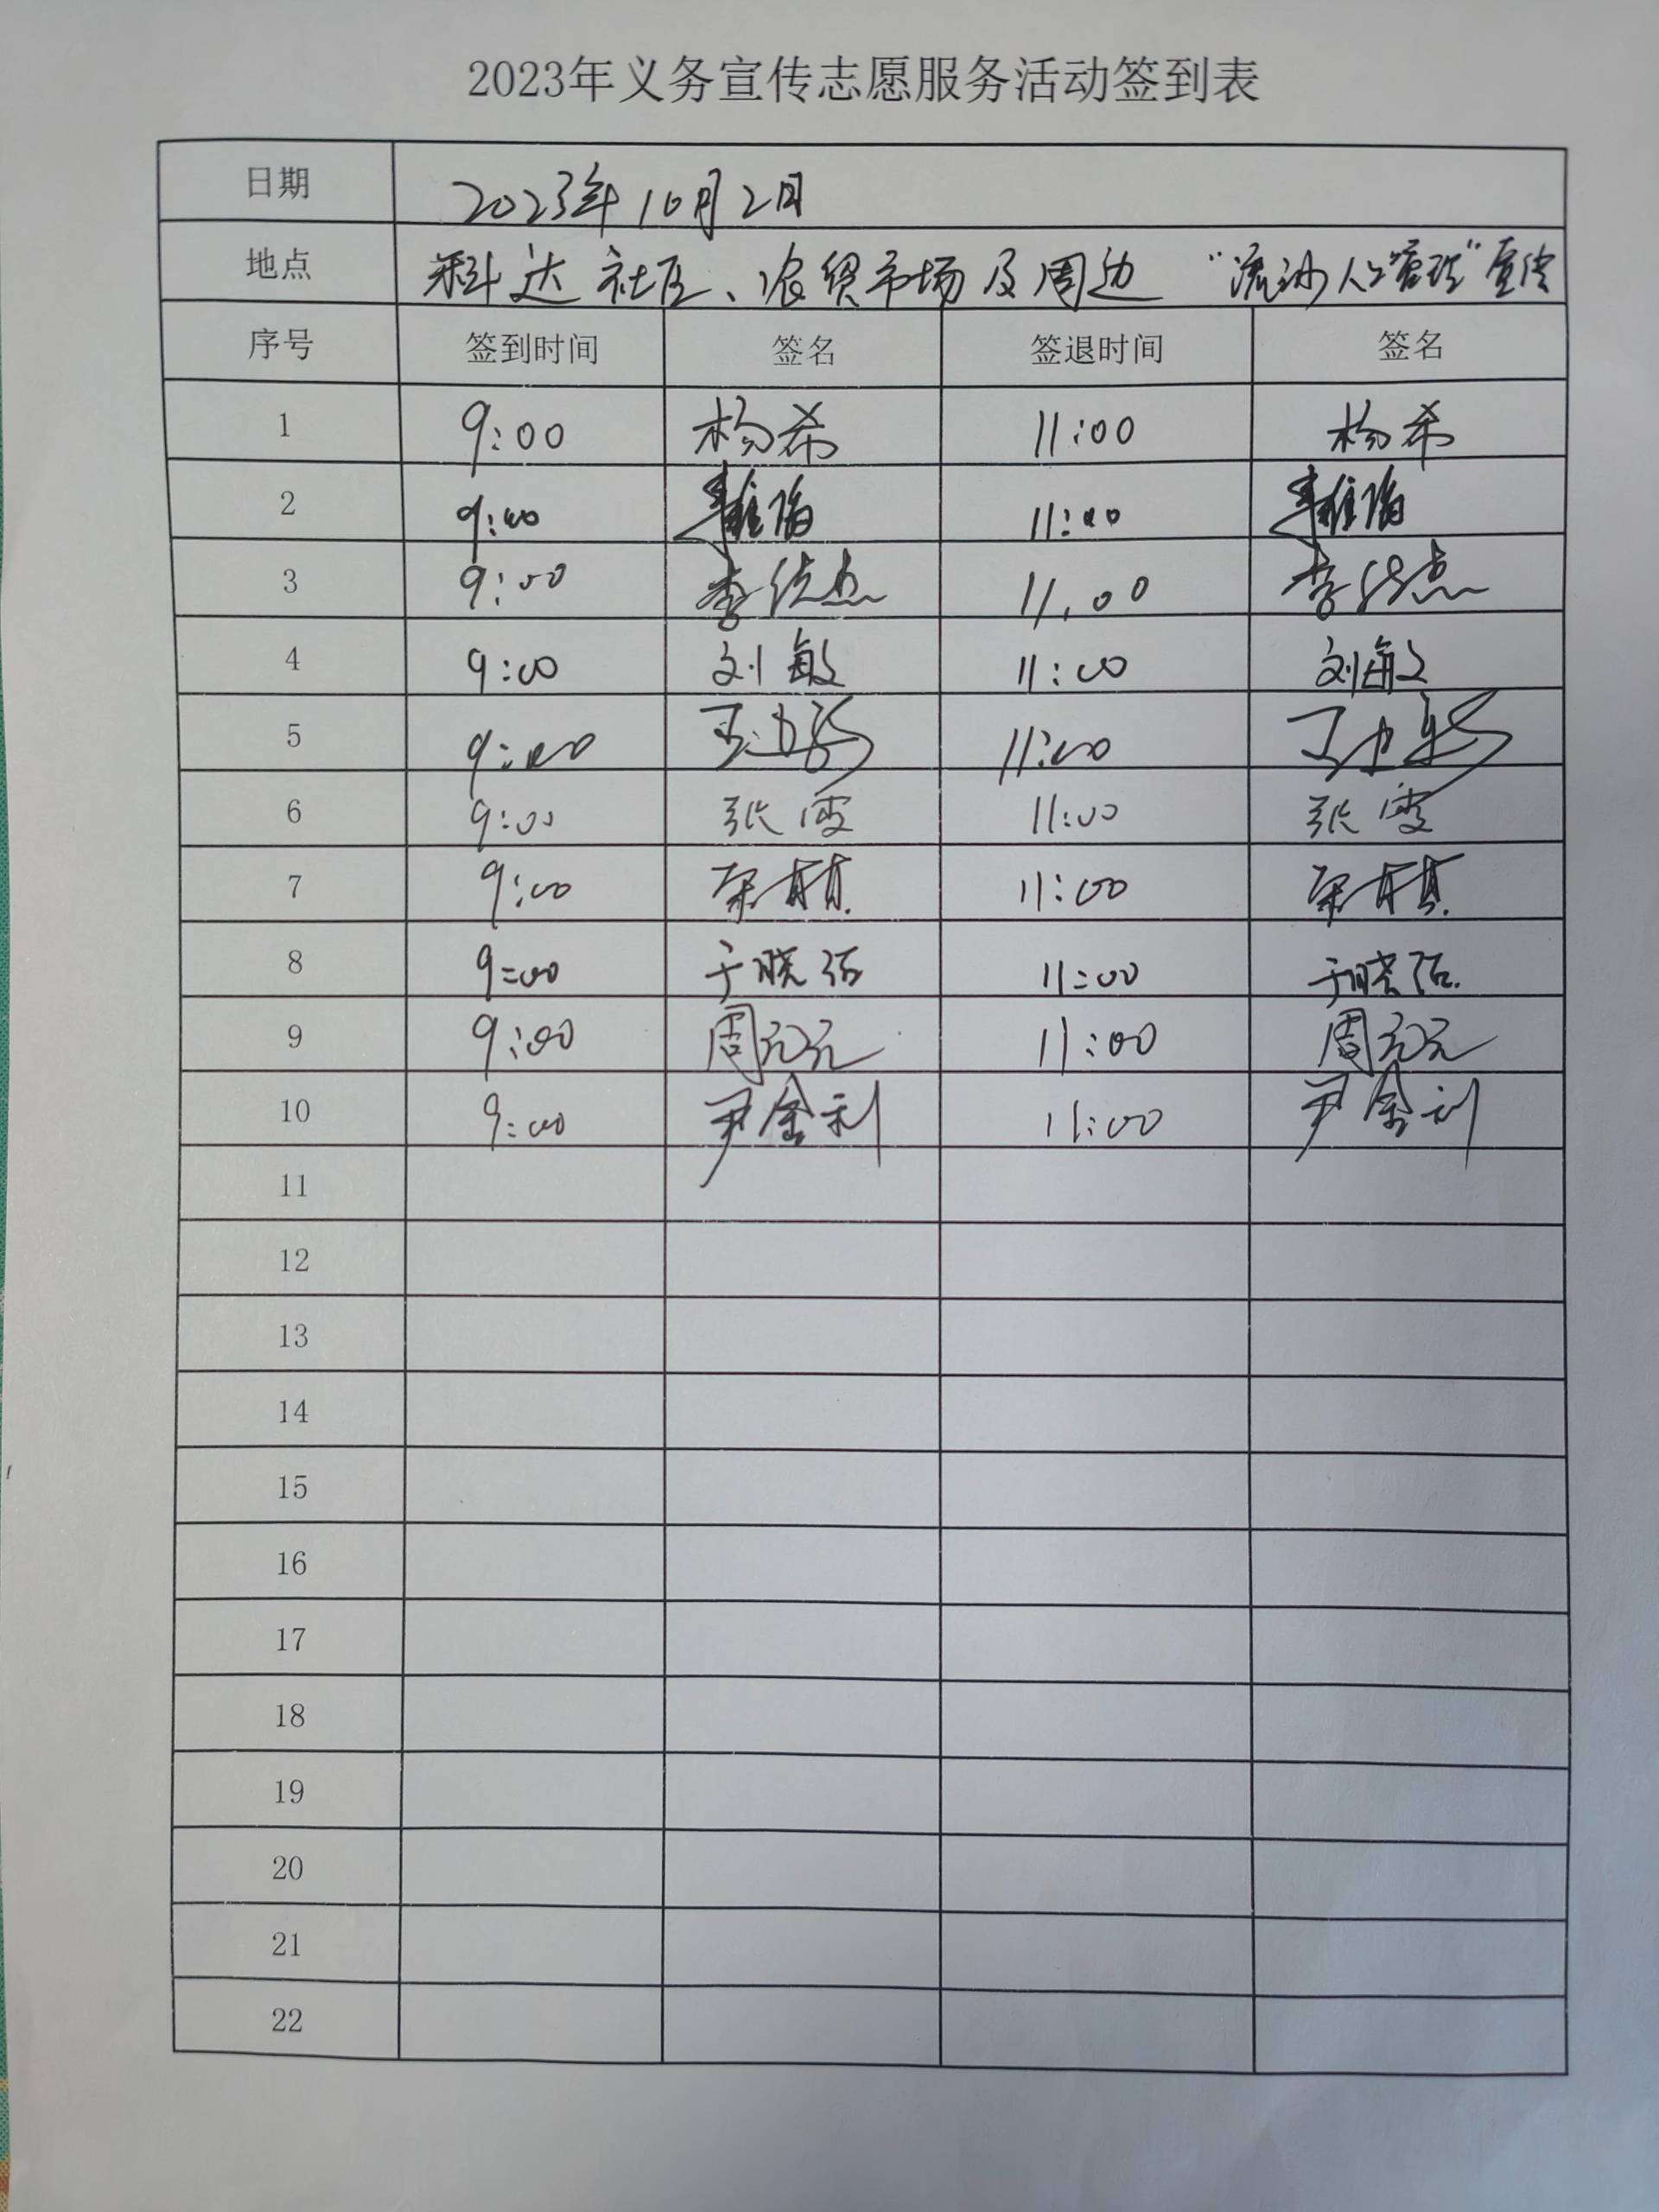 2023年义务宣传志愿服务活动签到表
日期 2023年10月2日
地点 科达社区、农贸市场及周边 "流动人口管理"宣传
序号 签到时间 签名 签退时间 签名
1 9:00 杨希 11:00 杨希
2 9:00 11:00
3 9:00 李 杰 11:00 李 杰
4 9:00 刘敏 11:00 刘敏
5 9:00 11:00
6 9:00 张雯 11:00 张雯
7 9:00 11:00
8 9:00 于晓 11:00 于晓
9 9:00 周元元 11:00 周元元
10 9:00 尹金利 11:00 尹金利
11
12
13
14
15
16
17
18
19
20
21
22